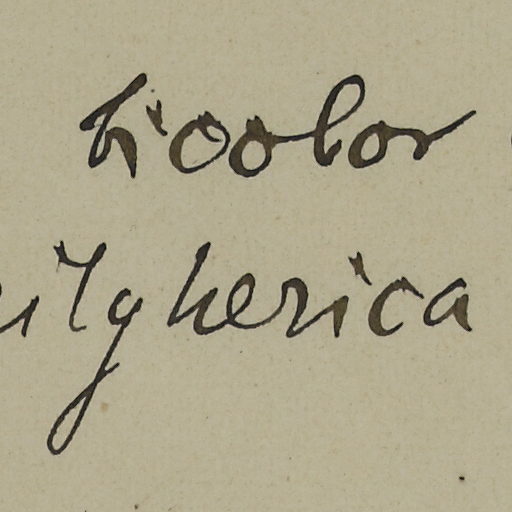 bicolor
ilgherica